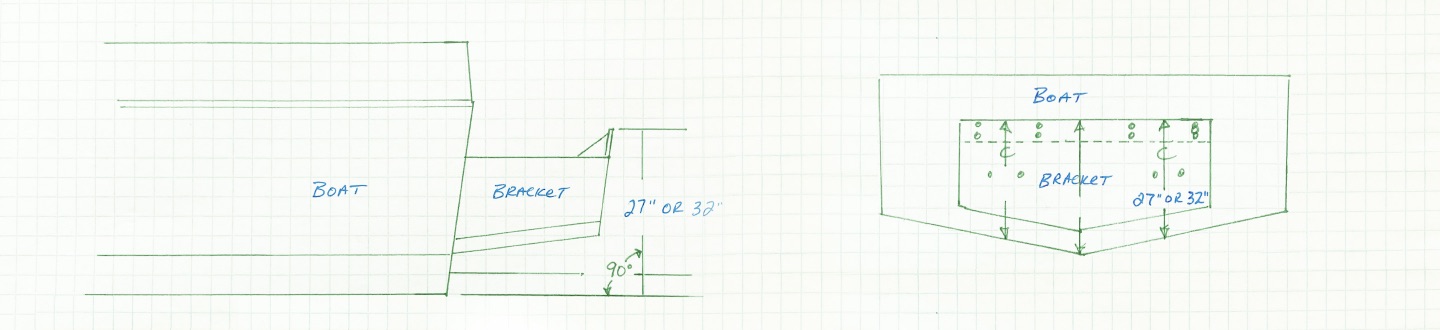 BOAT
BRACKET
27" OR 32"
90°
BOAT
C
C
BRACKET
27" OR 32"